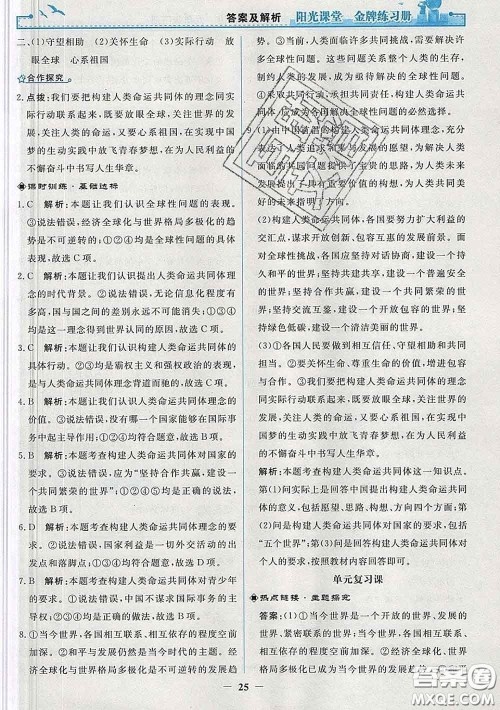 答案及解析
阳光课堂 金牌练习册
二、(1)守望相助 (2)关怀生命 (3)实际行动 放
眼全球 心系祖国
合作探究
2. 点拨:我们要把构建人类命运共同体的理念同实
际行动联系起来,既要放眼全球,关注世界的发
展,关注人类的命运,又要心系祖国,在实现中国
梦的生动实践中放飞青春梦想,在为人民利益的
不懈奋斗中书写人生华章。
课时训练·基础达标
1. C 解析:本题让我们认识全球性问题的表现。
③说法错误,经济全球化与世界格局多极化的趋
势是不可逆转的;①②④均是全球性问题的表
现,故选C项。
2. C 解析:本题让我们认识提出人类命运共同体理念
的时代背景。④说法错误,无论信息化程度有多
高,国与国之间的差别永远不可能消灭;①②③均
是这一理念得到世界认同的原因,故选C项。
3. C 解析:本题让我们认识构建人类命运共同体的
具体行动。④是霸权主义和强权政治的表现,
是与人类命运共同体理念背道而驰的,故选C项。
4. B 解析:本题让我们认识人类命运共同体理念的
价值。③说法错误,没有哪一个国家能够在国际事
务中打抱不平;①②④均符合题意,故选B项。
5. B 解析:本题考查构建人类命运共同体对国家的
要求。③说法错误,应为“坚持合作共赢,建设一
个共同繁荣的世界”;①②④均符合题意,故选
B项。
6. D 解析:本题考查构建人类命运共同体理念的要
求。④说法错误,国家利益是一切外交活动的出
发点和落脚点;①②③均符合题意,故选D项。
7. B 解析:本题考查构建人类命运共同体对青少年
的要求。②说法错误,中国不谋求发展国际霸权
主义;①③④均是正确的做法,故选B项。
8. ①当今世界,各国相互联系、相互依存的程度空前
加深。②人类生活在同一个地球村里,生活在历
史和现实交汇的同一个时空里。③当今世界,经济
全球化与世界格局多极化是不可逆转的发展趋
势,同时,人类也正面临许多共同挑战,需要面对诸多全球
性问题。这些问题关系整个人类的生存,
制约人类的发展,成为亟待解决的全球性问题。
④共同承担,应成为各国解决全球性问题的必然选择。
9. (1)由中国首倡的构建人类命运共同体的理念,充分
表达了人类追求和平与发展的愿望,为解决当今
人类共同问题提供了宝贵的思路,为各国共同发
展提出了具体的行动方案,为人类走向共同美
好的未来指明了方向。
(2)构建人类命运共同体,各国要努力扩大利益的
交汇点,谋求开放创新、包容互惠的发展前景。
面对全球挑战,各国应坚持对话协商,建设一个持
久和平的世界;坚持共建共享,建设一个普遍安全
的世界;坚持合作共赢,建设一个共同繁荣的世
界;坚持交流互鉴,建设一个开放包容的世界;坚
持绿色低碳,建设一个清洁美丽的世界。
(3)①各国人民应相互信任、守望相助和共同担
当。②要关怀生命、尊重生命的价值,增进信任,建
设信任。③要把构建人类命运共同体的理念同
实际行动联系起来,既要放眼全球,关注世界的发
展,关注人类的命运,又要心系祖国,在实现中国
梦的生动实践中放飞青春梦想,在为人民利益的
不懈奋斗中书写人生华章。
解析:本题考查构建人类命运共同体这一知识点。
第(1)问是主要是回答中国提出构建人类命运共同
体的意义,包括愿望、思路、构想、方向四个方面;第
(2)问是构建人类命运共同体对国家的要求,包括
“五个世界”;第(3)问是回答构建人类命运共同体的
要求,按照教材内容回答即可。
单元复习课
热点链接·主题探究
答案:(1)①当今世界是一个开放的世界、发展的
世界、紧密联系的世界;②当今世界,各国相互联
系、相互依存的程度空前加深,经济全球化与世界
格局多极化已成为当今世界的发展趋势
25
答案圈
MXQE.COM